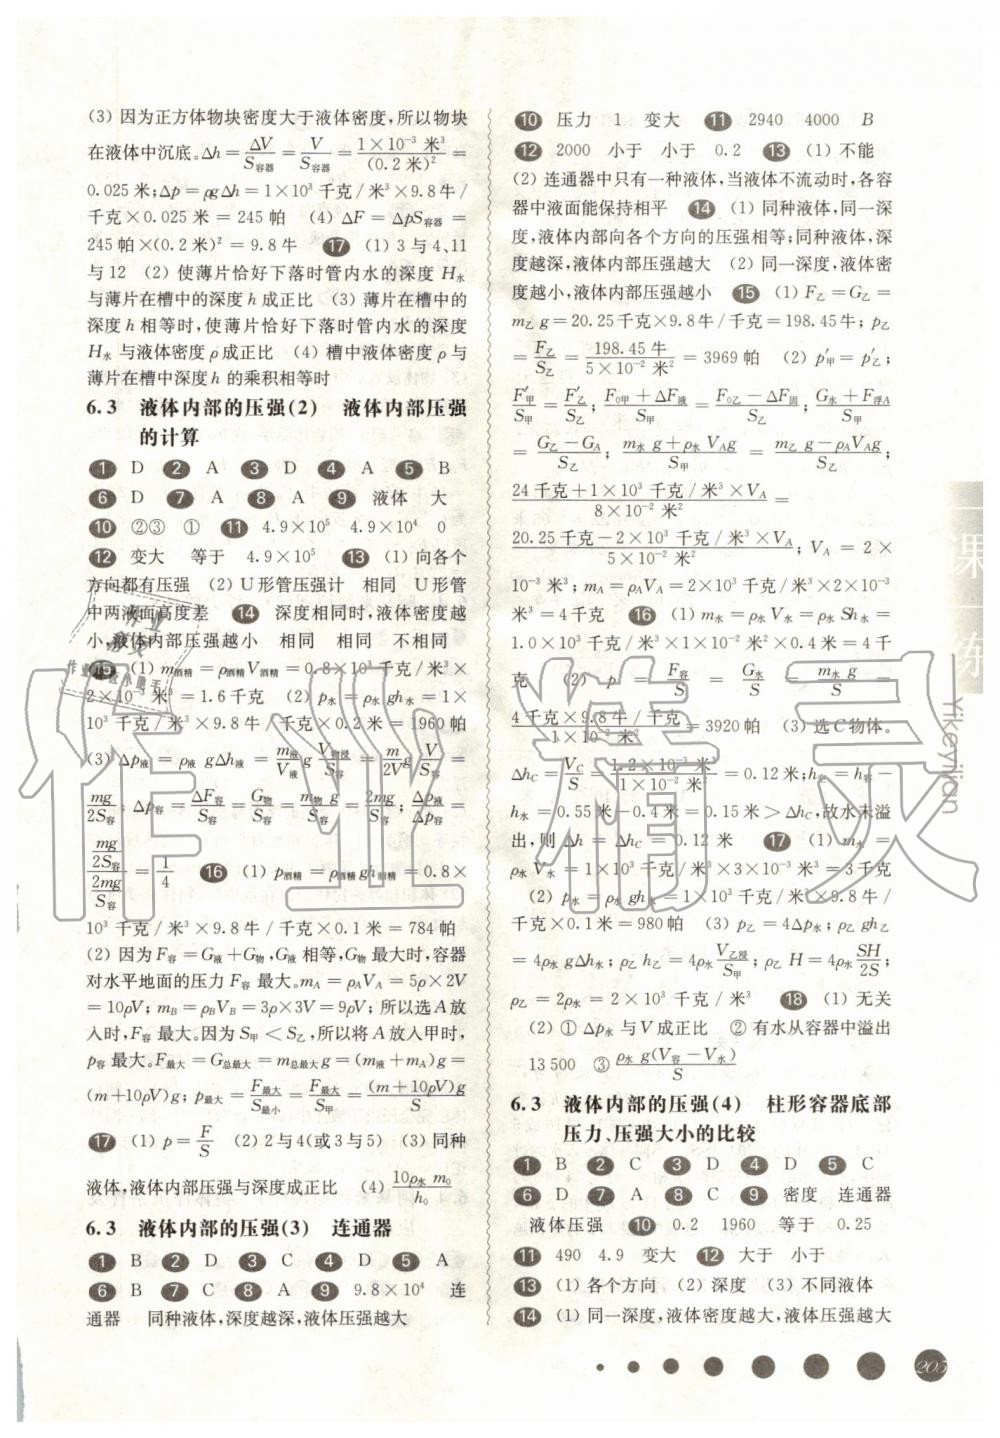 (3) 因为正方体物块密度大于液体密度,所以物块
在液体中沉底。Δh = ΔV/S容器 = V/S容器 = 1×10⁻³ 米³/(0.2 米)² =
0.025 米; Δp = ρgΔh = 1×10³ 千克/米³×9.8 牛/
千克×0.025 米 = 245 帕 (4) ΔF = ΔpS容器 =
245 帕×(0.2 米)² = 9.8 牛 17 (1) 3 与 4、11
与 12 (2) 使薄片恰好下落时管内水的深度 H水
与薄片在槽中的深度 h 成正比 (3) 薄片在槽中的
深度 h 相等时,使薄片恰好下落时管内水的深度
H水 与液体密度 ρ 成正比 (4) 槽中液体密度 ρ 与
薄片在槽中深度 h 的乘积相等时
6.3 液体内部的压强(2) 液体内部压强
的计算
1 D 2 A 3 D 4 A 5 B
6 D 7 A 8 A 9 液体 大
10 ②③ ① 11 4.9×10⁵ 4.9×10⁴ 0
12 变大 等于 4.9×10⁵ 13 (1) 向各个
方向都有压强 (2) U 形管压强计 相同 U 形管
中两液面高度差 14 深度相同时,液体密度越
小,液体内部压强越小 相同 相同 不相同
15 (1) m酒精 = ρ酒精V酒精 = 0.8×10³ 千克/米³×
2×10⁻³ 米³ = 1.6 千克 (2) p水 = ρ水gh水 = 1×
10³ 千克/米³×9.8 牛/千克×0.2 米 = 1960 帕
(3) Δp液 = ρ液 gΔh液 = m液/V液 g V物浸/S容 = m/2V g V/S容 =
mg/2S容; Δp容 = ΔF容/S容 = G物/S容 = m物 g/S容 = 2mg/S容; Δp液/Δp容 =
(mg/2S容)/(2mg/S容) = 1/4 16 (1) p酒精 = ρ酒精gh酒精 = 0.8×
10³ 千克/米³×9.8 牛/千克×0.1 米 = 784 帕
(2) 因为 F容 = G液 + G物, G液 相等, G物 最大时,容器
对水平地面的压力 F容 最大。mA = ρAVA = 5ρ×2V
= 10ρV; mB = ρBVB = 3ρ×3V = 9ρV; 所以选 A 放
入时, F容 最大。因为 S甲 < S乙,所以将 A 放入甲时,
p容 最大。F最大 = G总最大 = m总最大g = (m液 + mA)g =
(m+10ρV)g; p最大 = F最大/S最小 = F最大/S甲 = (m+10ρV)g/S
17 (1) p = F/S (2) 2 与 4(或 3 与 5) (3) 同种
液体,液体内部压强与深度成正比 (4) 10ρ水 m₀/h₀
6.3 液体内部的压强(3) 连通器
1 B 2 D 3 C 4 D 5 A
6 B 7 C 8 A 9 9.8×10⁴ 连
通器 同种液体,深度越深,液体压强越大
10 压力 1 变大 11 2940 4000 B
12 2000 小于 小于 0.2 13 (1) 不能
(2) 连通器中只有一种液体,当液体不流动时,各容
器中液面能保持相平 14 (1) 同种液体,同一深
度,液体内部向各个方向的压强相等;同种液体,深
度越深,液体内部压强越大 (2) 同一深度,液体密
度越小,液体内部压强越小 15 (1) F乙 = G乙 =
m乙 g = 20.25 千克×9.8 牛/千克 = 198.45 牛; p乙
= F乙/S乙 = 198.45 牛/5×10⁻² 米² = 3969 帕 (2) p′甲 = p′乙;
F′甲/S甲 = F′乙/S乙; F0甲+ΔF液/S甲 = F0乙−ΔF固/S乙; G水+F浮A/S甲
= G乙−GA/S乙; m水 g+ρ水 VAg/S甲 = m乙 g−ρAVAg/S乙;
24 千克+1×10³ 千克/米³×VA/8×10⁻² 米² =
20.25 千克−2×10³ 千克/米³×VA/5×10⁻² 米²; VA = 2×
10⁻³ 米³; mA = ρAVA = 2×10³ 千克/米³×2×10⁻³
米³ = 4 千克 16 (1) m水 = ρ水 V水 = ρ水 Sh水 =
1.0×10³ 千克/米³×1×10⁻² 米²×0.4 米 = 4 千
克 (2) p = F容/S = G水/S = m水 g/S =
4 千克×9.8 牛/千克/1×10⁻² 米² = 3920 帕 (3) 选 C 物体。
ΔhC = VC/S = 1.2×10⁻³ 米³/1×10⁻² 米² = 0.12 米; h空 = h容 −
h水 = 0.55 米−0.4 米 = 0.15 米 > ΔhC,故水未溢
出,则 Δh = ΔhC = 0.12 米 17 (1) m水 =
ρ水 V水 = 1×10³ 千克/米³×3×10⁻³ 米³ = 3 千克
(2) p水 = ρ水 gh水 = 1×10³ 千克/米³×9.8 牛/
千克×0.1 米 = 980 帕 (3) p乙 = 4Δp水; ρ乙 gh乙
= 4ρ水 gΔh水; ρ乙 h乙 = 4ρ水 V乙浸/S甲; ρ乙 H = 4ρ水 SH/2S;
ρ乙 = 2ρ水 = 2×10³ 千克/米³ 18 (1) 无关
(2) ① Δp水 与 V 成正比 ② 有水从容器中溢出
13 500 ③ ρ水 g(V容−V水)/S
6.3 液体内部的压强(4) 柱形容器底部
压力、压强大小的比较
1 B 2 C 3 D 4 D 5 C
6 D 7 A 8 C 9 密度 连通器
液体压强 10 0.2 1960 等于 0.25
11 490 4.9 变大 12 大于 小于
13 (1) 各个方向 (2) 深度 (3) 不同液体
14 (1) 同一深度,液体密度越大,液体压强越大
课
练
Yikeyilian
205
作业精灵